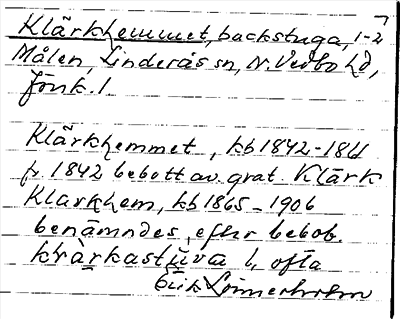 Klärkhemmet, backstuga, 1-2
Målen, Linderås sn, N. Vedbo hd,
Jönk. l.
Klärkhemmet, kb 1842-18
fr. 1842 bebott av grat. Klärk
Klarkhem, kb 1865-1906
benämndes, efter bebob.
krärkastuva l, ofta